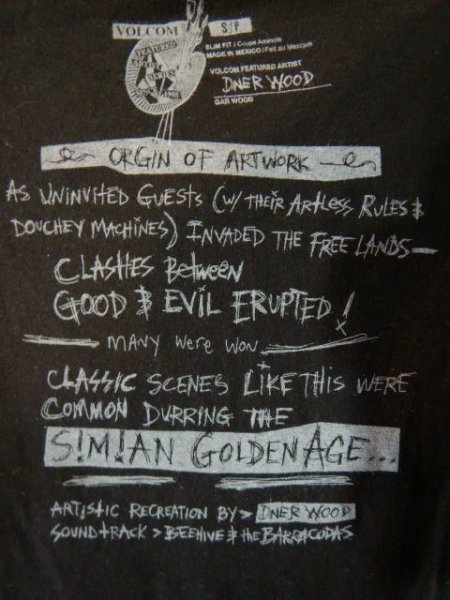 VOLCOM
S/P
SLIM FIT / Coupe Ajustée
MADE IN MEXICO / Fait au Mexique
VOLCOM FEATURED ARTIST
DNER WOOD
GAR WOOD
ORGIN OF ARTWORK
AS UNINVITED GUESTS (W/ THEIR ARTLESS RULES &
DOUCHEY MACHINES) INVADED THE FREE LANDS—
CLASHES BETWEEN
GOOD & EVIL ERUPTED!
MANY WERE WON
CLASSIC SCENES LIKE THIS WERE
COMMON DURRING THE
S!M!AN GOLDEN AGE...
ARTISTIC RECREATION BY > DNER WOOD
SOUNDTRACK > BEEHIVE & THE BARRACODAS